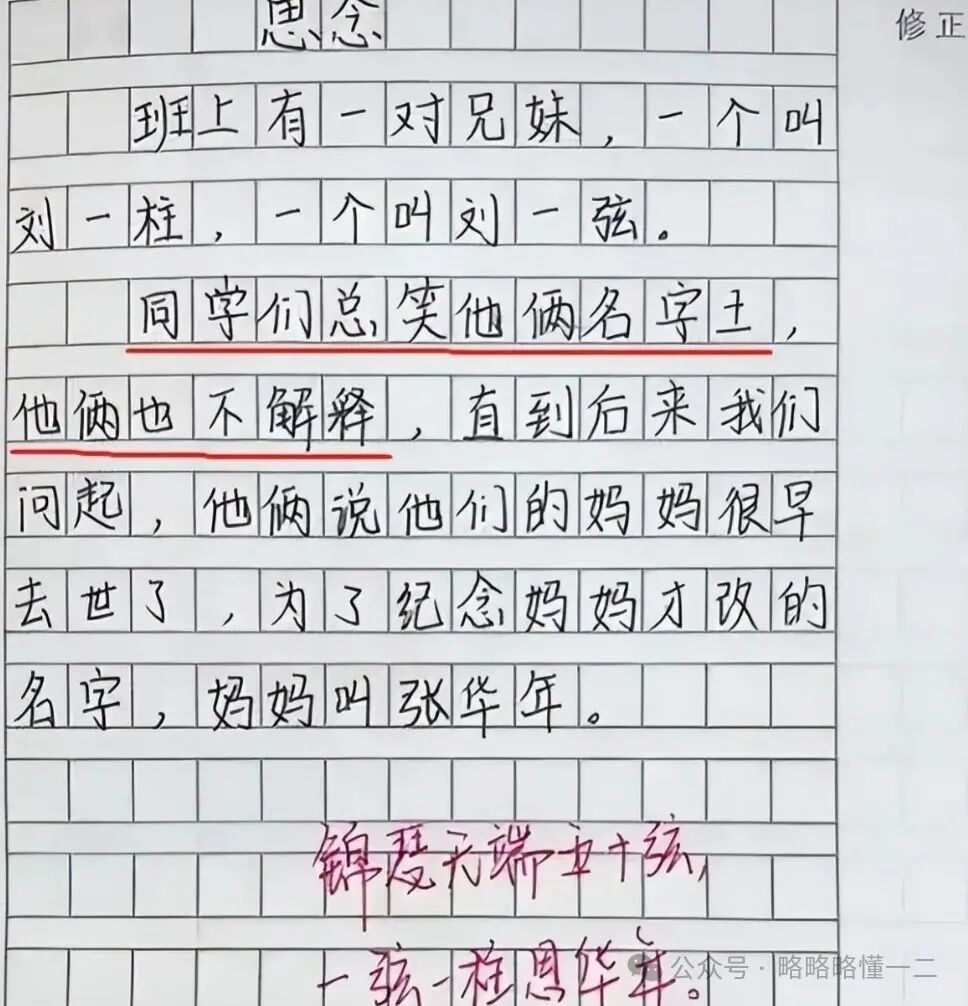 思念
修正
班上有一对兄妹，一个叫
刘一柱，一个叫刘一弦。
同学们总笑他俩名字土，
他俩也不解释，直到后来我们
问起，他俩说他们的妈妈很早
去世了，为了纪念妈妈才改的
名字，妈妈叫张华年。
锦瑟无端五十弦，
一弦一柱思华年。
公众号·略略略懂一二